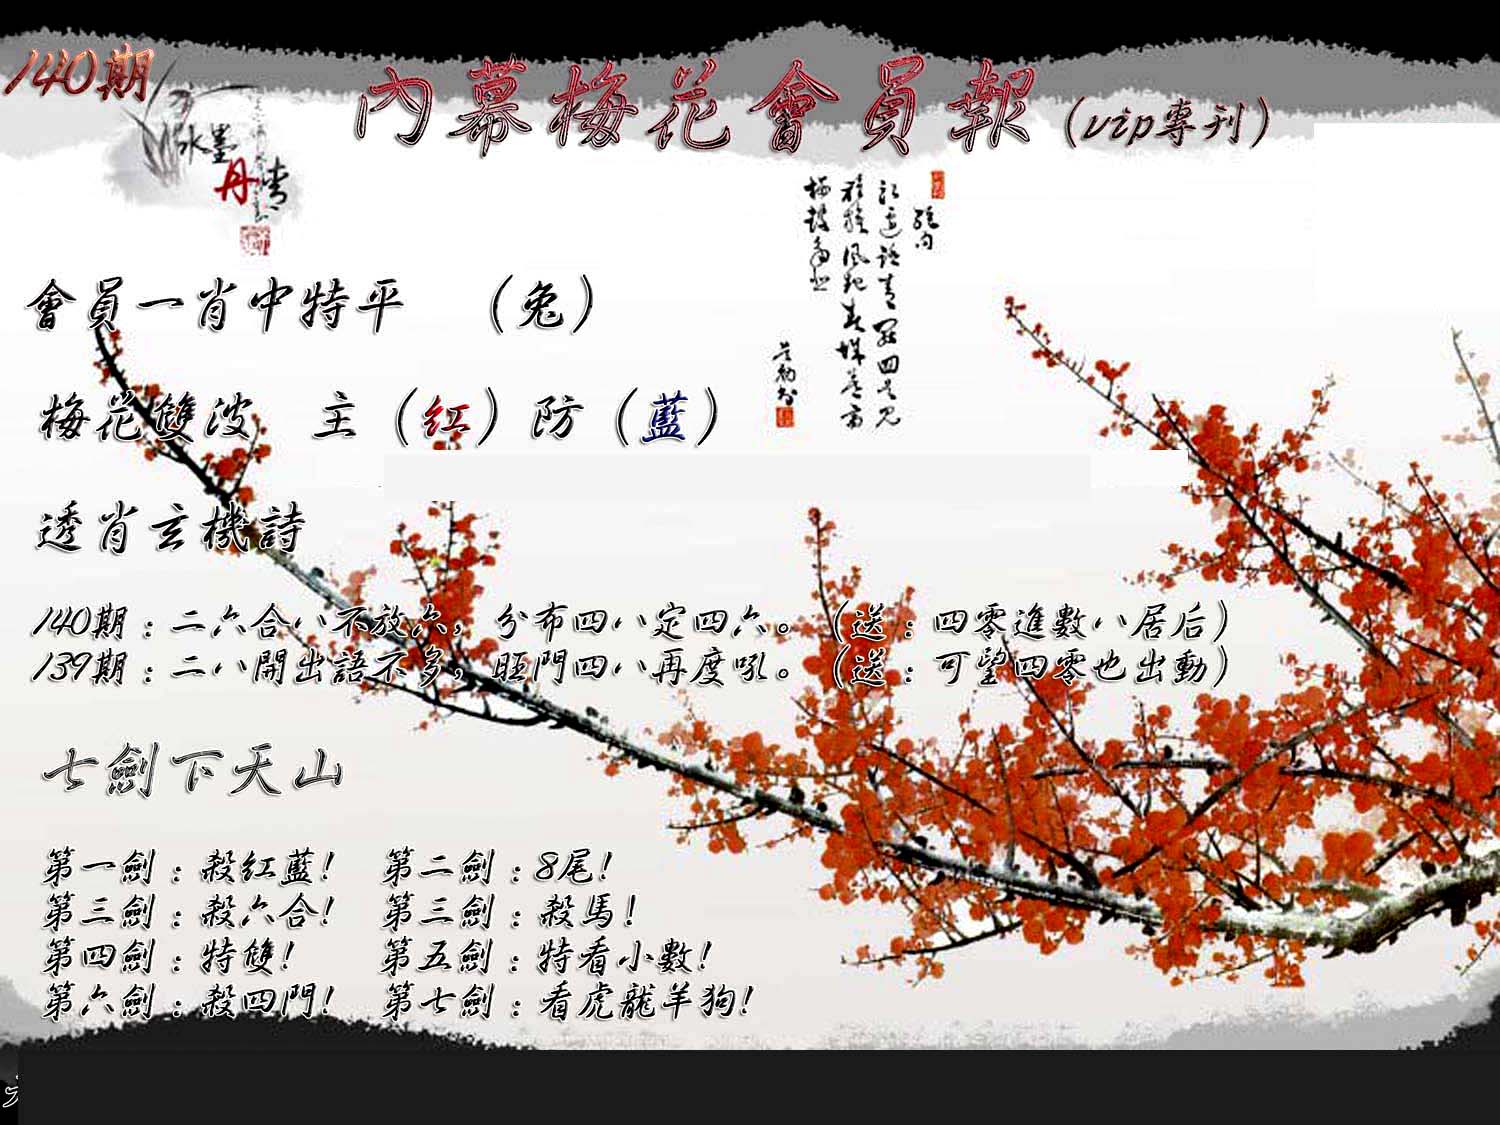 140期
內幕梅花會員報（vip專刊）
水墨
丹青
會員一肖中特平 （兔）
梅花雙波 主（紅）防（藍）
透肖玄機詩
140期：二六合八不放六，分布四八定四六。（送：四零進數八居后）
139期：二八開出語不多，旺門四八再度吼。（送：可望四零也出動）
七劍下天山
第一劍：殺紅藍！ 第二劍：8尾！
第三劍：殺六合！ 第三劍：殺馬！
第四劍：特雙！ 第五劍：特看小數！
第六劍：殺四門！ 第七劍：看虎龍羊狗！